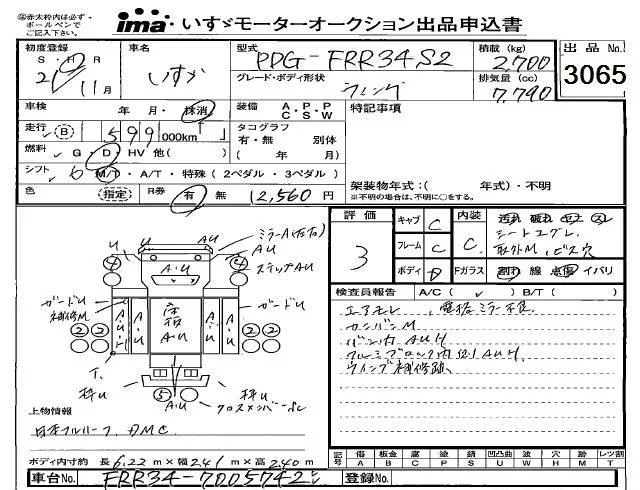 ㊟赤太枠内は必ず・ボールペンでご記入下さい。
ima いすゞモーターオークション出品申込書
初度登録 S・H・R 21年 11月
車名 いすゞ
型式 PDG-FRR34S2
積載 (kg) 2,700
出品No. 3065
グレード・ボディ形状 ウィング
排気量 (cc) 7,790
車検 年・月・抹消
装備 A・P・P C S W
特記事項
走行 B 599 000km
タコグラフ 有・無 別体 ( 年 月)
燃料 G・D・HV 他( )
シフト 6 M/T・A/T・特殊(2ペダル・3ペダル)
架装物年式:( 年式)・不明
※不明の場合は、不明に○をする。
色 指定 R券 有 無 12,560円
評価 3
キャブ C
内装 C
シートコゲ,
フレーム C
取外M, ビス穴
ボディ D
Fガラス 割れ 線 点傷 イバリ
検査員報告 A/C( ✓ ) B/T( )
エアモレ、電格ミラー不良
カンバンM
バン内AUH
アルミブロック内位1AUH
ウイング補修跡
U AU ミラーA(左右)
AU
④ ④
A・U
ステップAU
ガードU
補修M
A・U・H
床板
A・U
ガードU
② ② ② ②
枠U
⑤
A・U
枠U
クロスメンバー
上物情報
日本フルハーフ、DMC
ボディ内寸約 長6.22m×幅2.41m×高2.40m
記号 傷 A 板金 B 腐 C 塗 P サビ S 凹凸曲 U 波 W 穴 H 跡 M レツ割 T
車台No. FRR34-7005742
登録No.